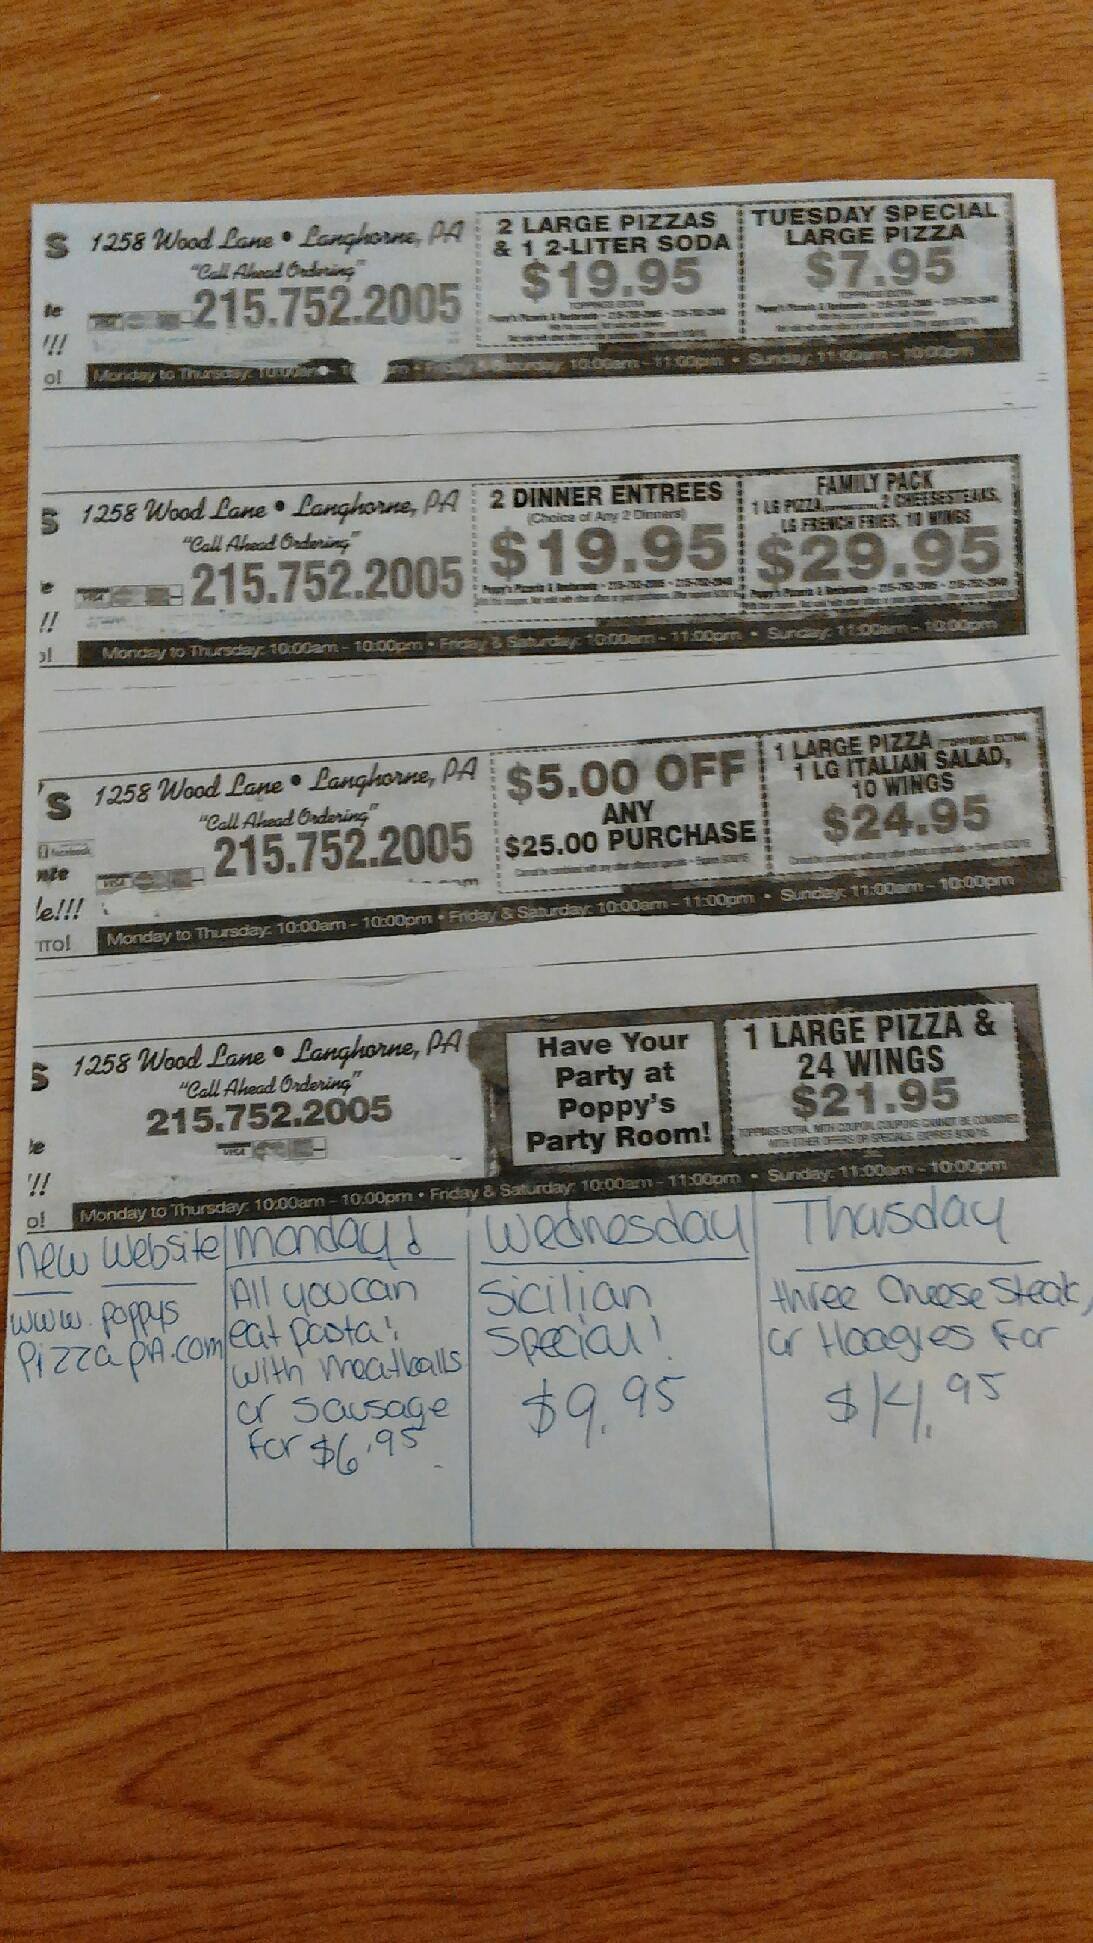 S 1258 Wood Lane • Langhorne, PA
"Call Ahead Ordering"
215.752.2005
VISA
!!!
2 LARGE PIZZAS
& 1 2-LITER SODA
$19.95
TOPPINGS EXTRA
TUESDAY SPECIAL
LARGE PIZZA
$7.95
TOPPINGS EXTRA
o! Monday to Thursday: 10:00am - 10 pm • Friday & Saturday: 10:00am - 11:00pm • Sunday: 11:00am - 10:00pm
S 1258 Wood Lane • Langhorne, PA
"Call Ahead Ordering"
215.752.2005
VISA
!!
2 DINNER ENTREES
(Choice of Any 2 Dinners)
$19.95
Poppy's Pizzeria & Restaurante • 215-752-2005 • 215-752-2940
FAMILY PACK
1 LG PIZZA, 2 CHEESESTEAKS,
LG FRENCH FRIES, 10 WINGS
$29.95
Poppy's Pizzeria & Restaurante • 215-752-2005 • 215-752-2940
ol Monday to Thursday: 10:00am - 10:00pm • Friday & Saturday: 10:00am - 11:00pm • Sunday: 11:00am - 10:00pm
's 1258 Wood Lane • Langhorne, PA
"Call Ahead Ordering"
215.752.2005
facebook
nte VISA
le!!!
$5.00 OFF
ANY
$25.00 PURCHASE
1 LARGE PIZZA TOPPINGS EXTRA
1 LG ITALIAN SALAD,
10 WINGS
$24.95
rro! Monday to Thursday: 10:00am - 10:00pm • Friday & Saturday: 10:00am - 11:00pm • Sunday: 11:00am - 10:00pm
S 1258 Wood Lane • Langhorne, PA
"Call Ahead Ordering"
215.752.2005
VISA
te
!!
Have Your
Party at
Poppy's
Party Room!
1 LARGE PIZZA &
24 WINGS
$21.95
TOPPINGS EXTRA. WITH COUPON. COUPONS CANNOT BE COMBINED
WITH OTHER OFFERS OR SPECIALS. EXPIRES
o! Monday to Thursday: 10:00am - 10:00pm • Friday & Saturday: 10:00am - 11:00pm • Sunday: 11:00am - 10:00pm
New Website
www.poppys
PizzapA.com
Monday!
All you can
eat pasta!
with meatballs
or sausage
For $6.95
Wednesday
Sicilian
Special!
$9.95
Thusday
three Cheese Steak,
or Hoagies For
$14.95